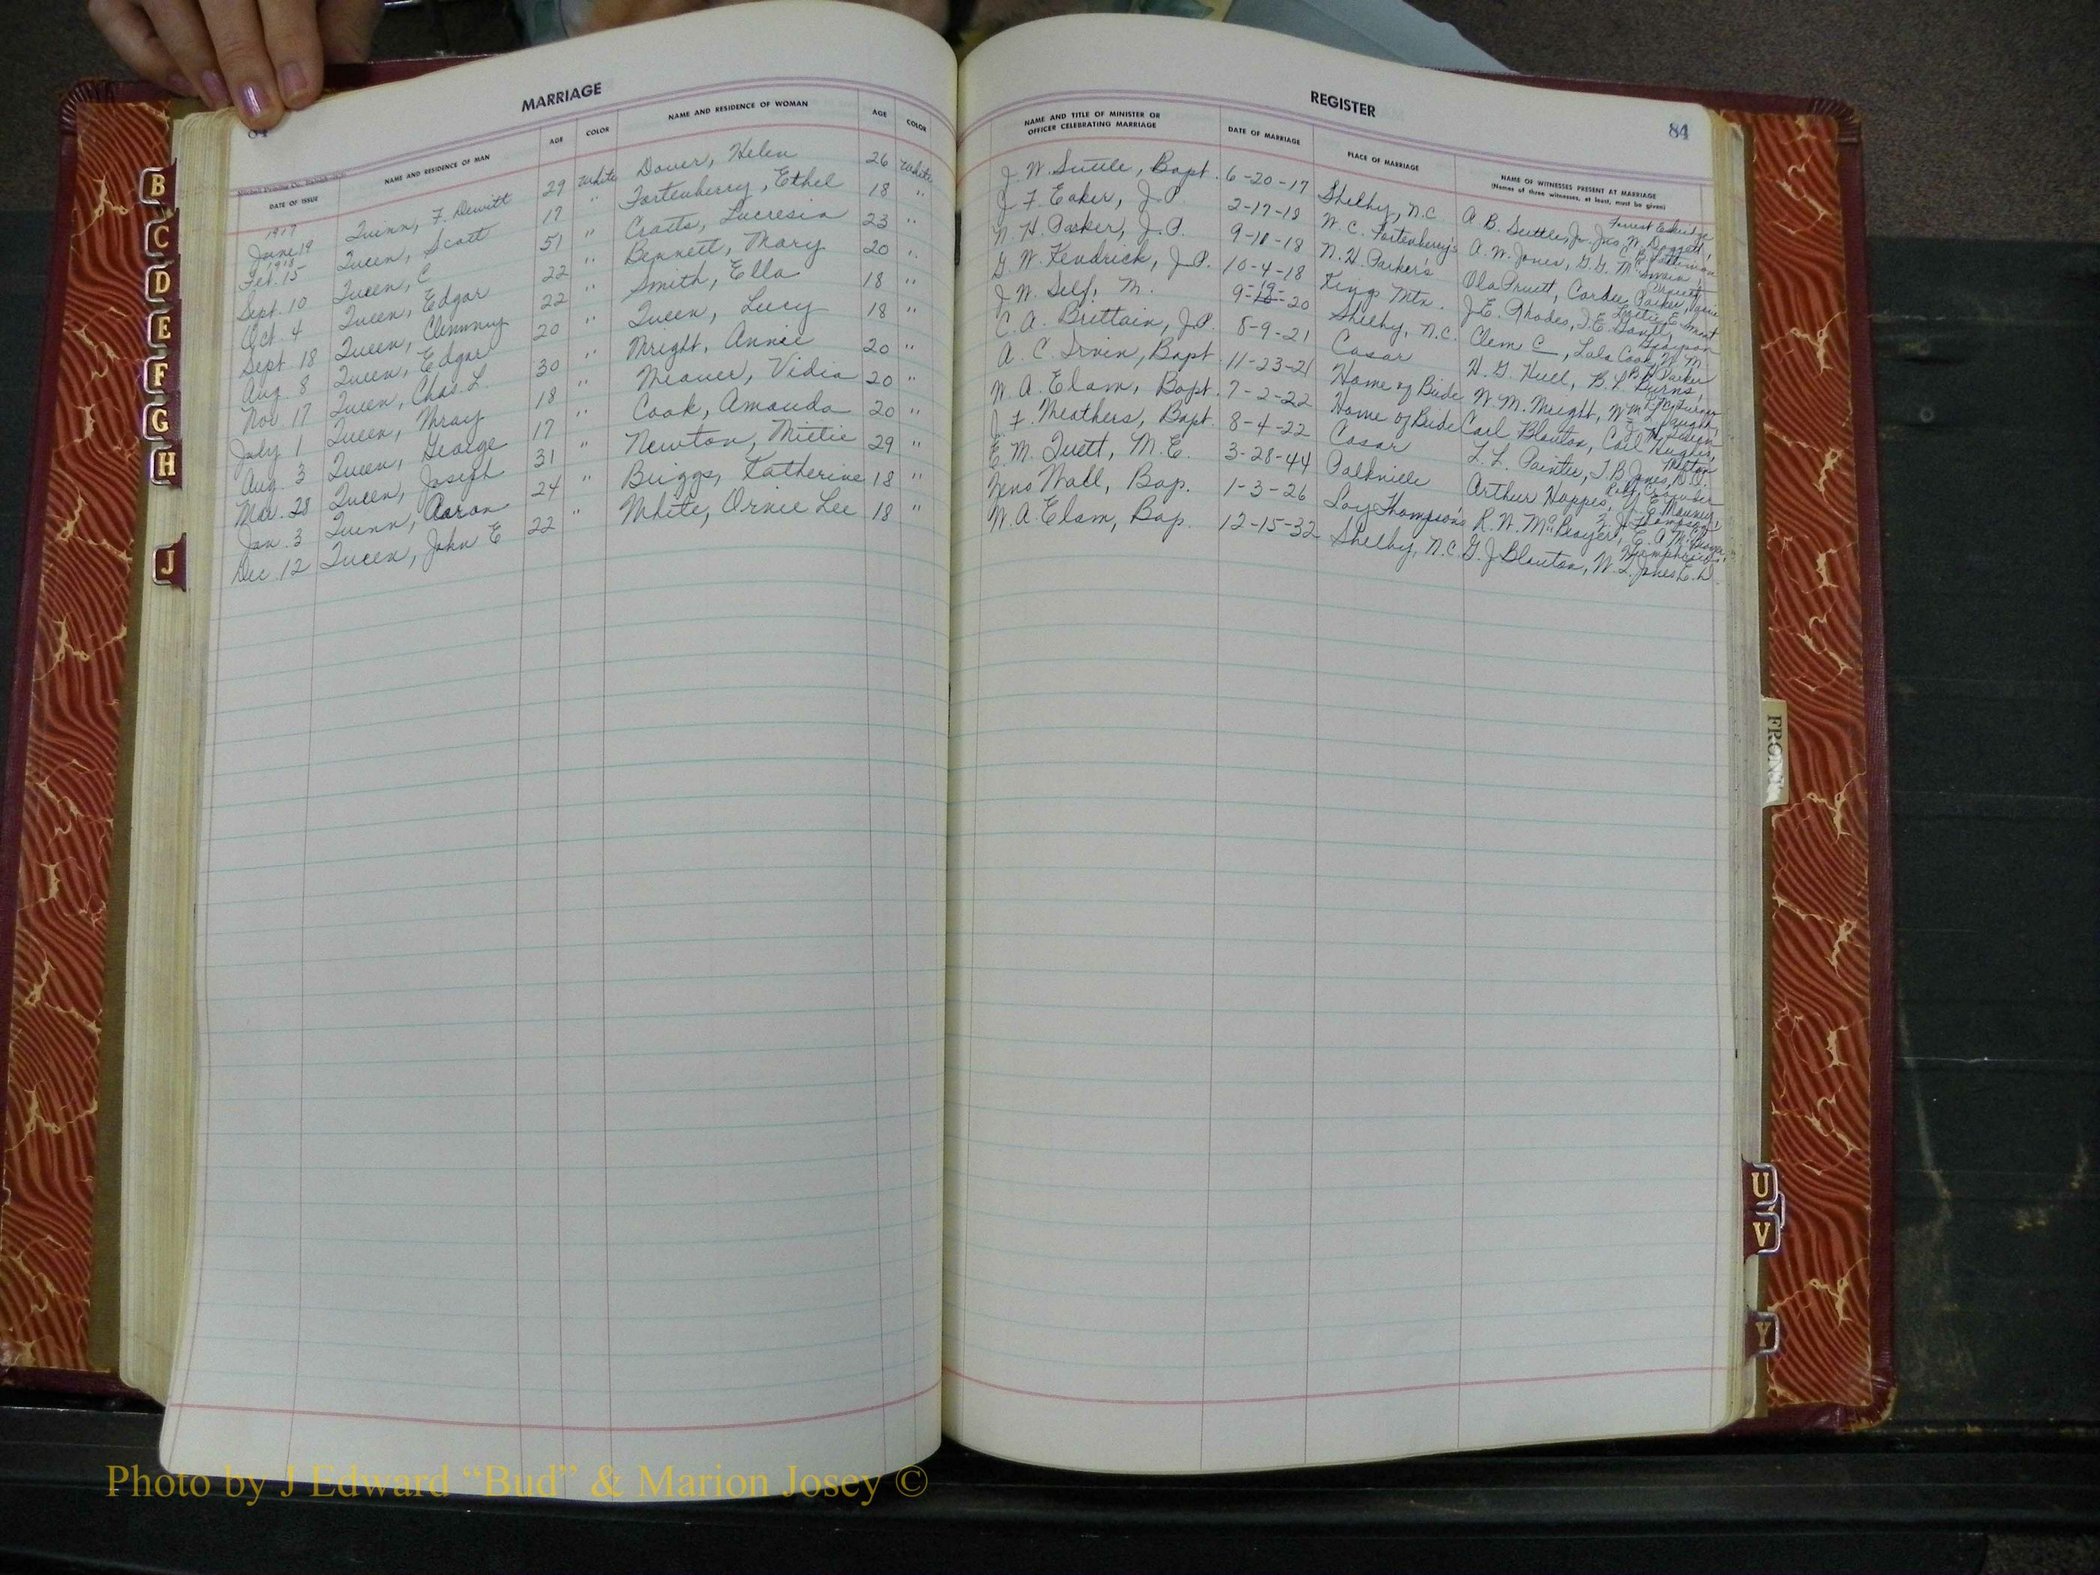 MARRIAGE
REGISTER
84
84
DATE OF ISSUE NAME AND RESIDENCE OF MAN AGE COLOR NAME AND RESIDENCE OF WOMAN AGE COLOR
NAME AND TITLE OF MINISTER OR OFFICER CELEBRATING MARRIAGE DATE OF MARRIAGE PLACE OF MARRIAGE NAME OF WITNESSES PRESENT AT MARRIAGE (Names of three witnesses, at least, must be given)
1917
June 19 Quinn, F. Dewitt 29 White Dover, Helen 26 White
1918
Feb. 15 Queen, Scott 17 " Fortenberry, Ethel 18 "
Sept. 10 Queen, C 51 " Crotts, Lucresia 23 "
Oct. 4 Queen, Edgar 22 " Bennett, Mary 20 "
Sept. 18 Queen, Clemmy 22 " Smith, Ella 18 "
Aug. 8 Queen, Edgar 20 " Queen, Lucy 18 "
Nov. 17 Queen, Chas. L. 30 " Wright, Annie 20 "
July 1 Queen, Wray 18 " Weaver, Vidia 20 "
Aug. 3 Queen, George 17 " Cook, Amanda 20 "
Mar. 28 Queen, Joseph 31 " Newton, Mittie 29 "
Jan. 3 Quinn, Aaron 24 " Briggs, Katherine 18 "
Dec. 12 Queen, John E 22 " White, Ornie Lee 18 "
J. W. Suttle, Bapt. 6-20-17 Shelby, N.C. A. B. Suttle, Jr. Jno. W. Doggett, Forrest Eskridge
J. F. Eaker, J.P. 2-17-18 W. C. Fortenberry's A. W. Jones, G. G.
N. H. Parker, J.P. 9-10-18 N. H. Parker's Ola Pruett, Cordie Parker,
G. W. Kendrick, J.P. 10-4-18 Kings Mtn. J. E. Rhodes, I. E. Gantt,
J. W. Self, M. 9-19-20 Shelby, N.C. Clem C, Lala Cook, W. M.
C. A. Brittain, J.P. 8-9-21 Casar H. G. Hull, B. L. Burns, B. H. Parker
A. C. Irvin, Bapt. 11-23-21 Home of Bride W. M. Wright,
W. A. Elam, Bapt. 7-2-22 Home of Bride Carl Blanton, Carl Hughes,
J. F. Weathers, Bapt. 8-4-22 Casar L. L. Painter, T. B. Jones,
E. M. M. E. 3-28-44 Polkville Arthur Hoppes,
Zeno Wall, Bap. 1-3-26 Loy Thompson's R. W. McBrayer, E. A. McBrayer,
W. A. Elam, Bap. 12-15-32 Shelby, N.C. G. J. Blanton, W. L. Jones, E. D.
B
C
D
E
F
G
H
J
FRONT
U
V
Y
Photo by J Edward “Bud” & Marion Josey ©